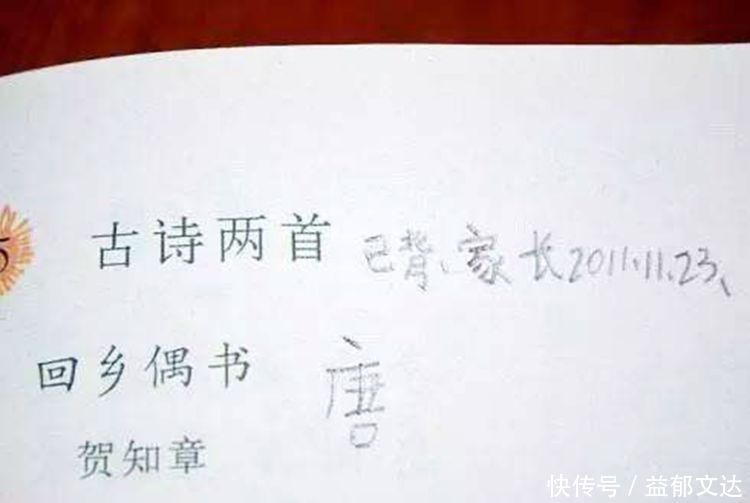 5 古诗两首 已背、家长2011.11.23、
回乡偶书 唐
贺知章
快传号 / 益郁文达